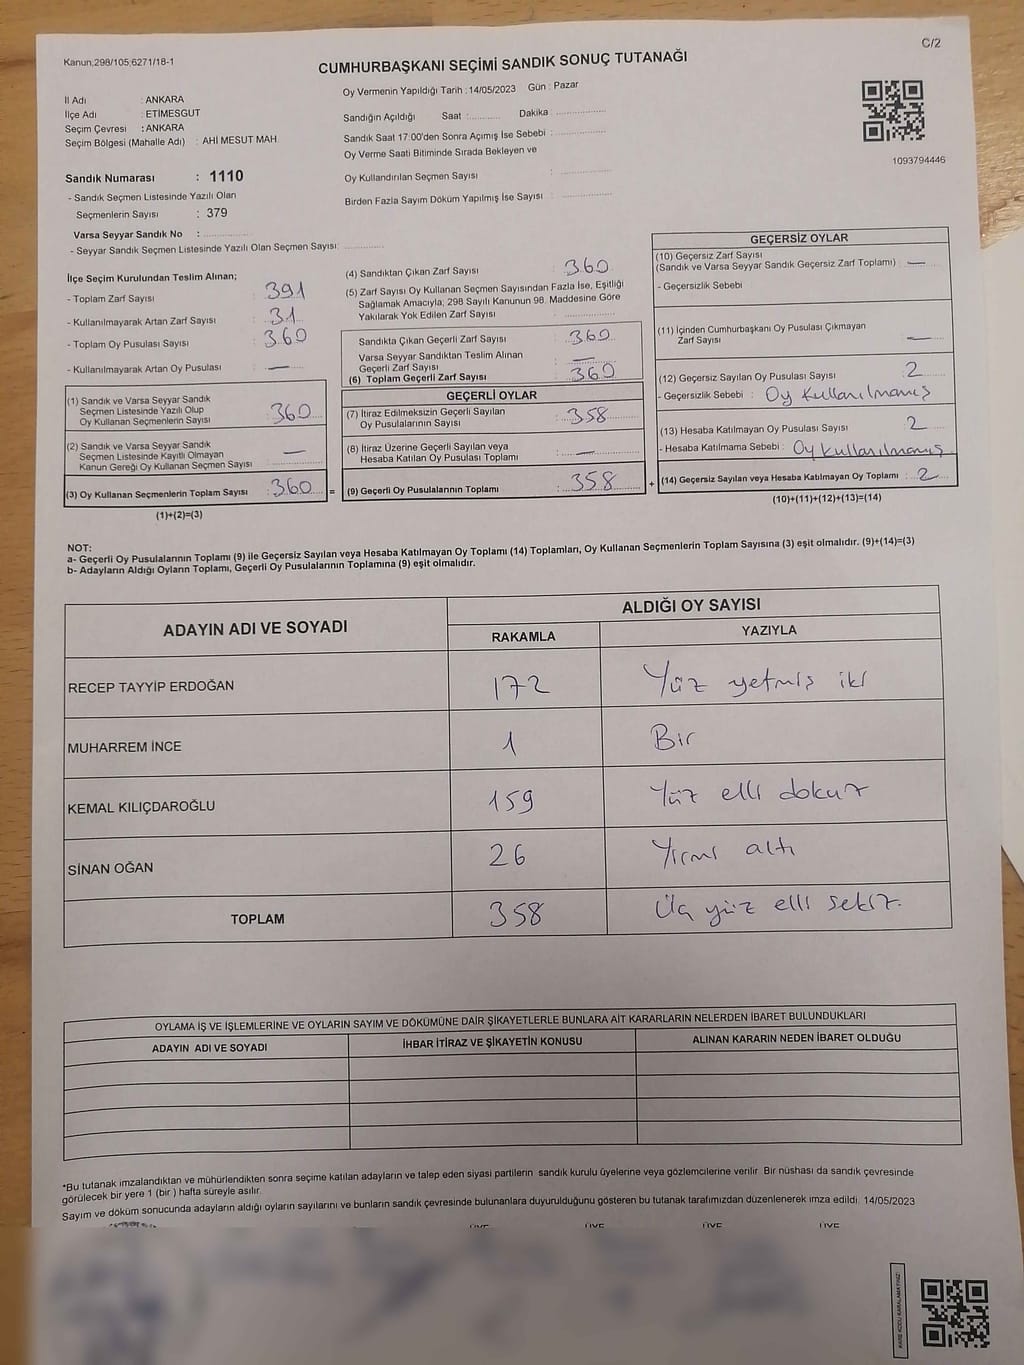 C/2
Kanun;298/105;6271/18-1
CUMHURBAŞKANI SEÇİMİ SANDIK SONUÇ TUTANAĞI
İl Adı : ANKARA
İlçe Adı : ETİMESGUT
Seçim Çevresi : ANKARA
Seçim Bölgesi (Mahalle Adı) : AHİ MESUT MAH
Sandık Numarası : 1110
- Sandık Seçmen Listesinde Yazılı Olan
Seçmenlerin Sayısı : 379
Varsa Seyyar Sandık No :
- Seyyar Sandık Seçmen Listesinde Yazılı Olan Seçmen Sayısı:
Oy Vermenin Yapıldığı Tarih : 14/05/2023 Gün : Pazar
Sandığın Açıldığı Saat : Dakika :
Sandık Saat 17:00'den Sonra Açımış İse Sebebi :
Oy Verme Saati Bitiminde Sırada Bekleyen ve
Oy Kullandırılan Seçmen Sayısı :
Birden Fazla Sayım Döküm Yapılmış İse Sayısı :
1093794446
İlçe Seçim Kurulundan Teslim Alınan;
- Toplam Zarf Sayısı : 391
- Kullanılmayarak Artan Zarf Sayısı : 31
- Toplam Oy Pusulası Sayısı : 360
- Kullanılmayarak Artan Oy Pusulası : —
(1) Sandık ve Varsa Seyyar Sandık
Seçmen Listesinde Yazılı Olup
Oy Kullanan Seçmenlerin Sayısı : 360
(2) Sandık ve Varsa Seyyar Sandık
Seçmen Listesinde Kayıtlı Olmayan
Kanun Gereği Oy Kullanan Seçmen Sayısı : —
(3) Oy Kullanan Seçmenlerin Toplam Sayısı : 360 =
(1)+(2)=(3)
(4) Sandıktan Çıkan Zarf Sayısı : 360
(5) Zarf Sayısı Oy Kullanan Seçmen Sayısından Fazla İse, Eşitliği
Sağlamak Amacıyla; 298 Sayılı Kanunun 98. Maddesine Göre
Yakılarak Yok Edilen Zarf Sayısı :
Sandıkta Çıkan Geçerli Zarf Sayısı : 360
Varsa Seyyar Sandıktan Teslim Alınan
Geçerli Zarf Sayısı : —
(6) Toplam Geçerli Zarf Sayısı : 360
GEÇERLİ OYLAR
(7) İtiraz Edilmeksizin Geçerli Sayılan
Oy Pusulalarının Sayısı : 358
(8) İtiraz Üzerine Geçerli Sayılan veya
Hesaba Katılan Oy Pusulası Toplamı : —
(9) Geçerli Oy Pusulalarının Toplamı : 358 +
GEÇERSİZ OYLAR
(10) Geçersiz Zarf Sayısı
(Sandık ve Varsa Seyyar Sandık Geçersiz Zarf Toplamı) : —
- Geçersizlik Sebebi
(11) İçinden Cumhurbaşkanı Oy Pusulası Çıkmayan
Zarf Sayısı : —
(12) Geçersiz Sayılan Oy Pusulası Sayısı : 2
- Geçersizlik Sebebi : Oy Kullanılmamış
(13) Hesaba Katılmayan Oy Pusulası Sayısı : 2
- Hesaba Katılmama Sebebi : Oy kullanılmamış
(14) Geçersiz Sayılan veya Hesaba Katılmayan Oy Toplamı : 2
(10)+(11)+(12)+(13)=(14)
NOT:
a- Geçerli Oy Pusulalarının Toplamı (9) ile Geçersiz Sayılan veya Hesaba Katılmayan Oy Toplamı (14) Toplamları, Oy Kullanan Seçmenlerin Toplam Sayısına (3) eşit olmalıdır. (9)+(14)=(3)
b- Adayların Aldığı Oyların Toplamı, Geçerli Oy Pusulalarının Toplamına (9) eşit olmalıdır.
ADAYIN ADI VE SOYADI ALDIĞI OY SAYISI
RAKAMLA YAZIYLA
RECEP TAYYİP ERDOĞAN 172 Yüz yetmiş iki
MUHARREM İNCE 1 Bir
KEMAL KILIÇDAROĞLU 159 Yüz elli dokuz
SİNAN OĞAN 26 Yirmi altı
TOPLAM 358 Üç yüz elli sekiz.
OYLAMA İŞ VE İŞLEMLERİNE VE OYLARIN SAYIM VE DÖKÜMÜNE DAİR ŞİKAYETLERLE BUNLARA AİT KARARLARIN NELERDEN İBARET BULUNDUKLARI
ADAYIN ADI VE SOYADI İHBAR İTİRAZ VE ŞİKAYETİN KONUSU ALINAN KARARIN NEDEN İBARET OLDUĞU
*Bu tutanak imzalandıktan ve mühürlendikten sonra seçime katılan adayların ve talep eden siyasi partilerin sandık kurulu üyelerine veya gözlemcilerine verilir. Bir nüshası da sandık çevresinde
görülecek bir yere 1 (bir ) hafta süreyle asılır.
Sayım ve döküm sonucunda adayların aldığı oyların sayılarını ve bunların sandık çevresinde bulunanlara duyurulduğunu gösteren bu tutanak tarafımızdan düzenlenerek imza edildi. 14/05/2023
ÜYE ÜYE ÜYE ÜYE
KARE KODU KARALAMAYINIZ!